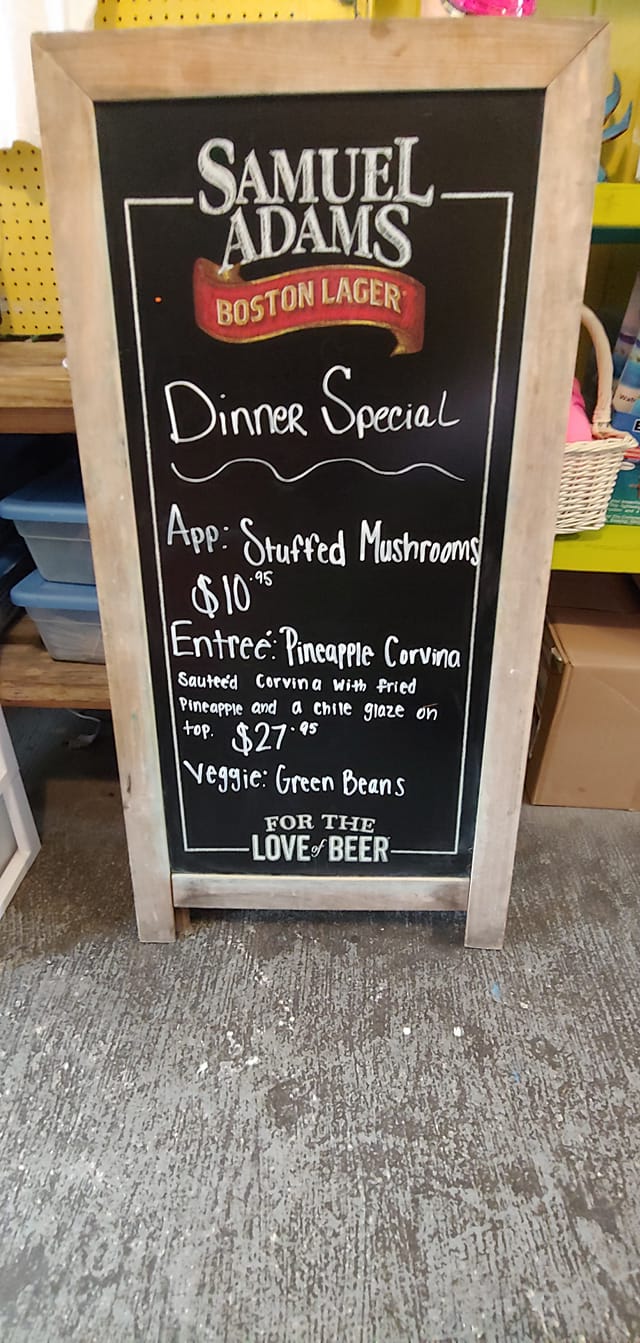 SAMUEL
ADAMS
BOSTON LAGER
Dinner Special
App: Stuffed Mushrooms
$10.95
Entreé: Pineapple Corvina
Sauteéd Corvina with fried
Pineapple and a chile glaze on
top. $27.95
Veggie: Green Beans
FOR THE
LOVE of BEER